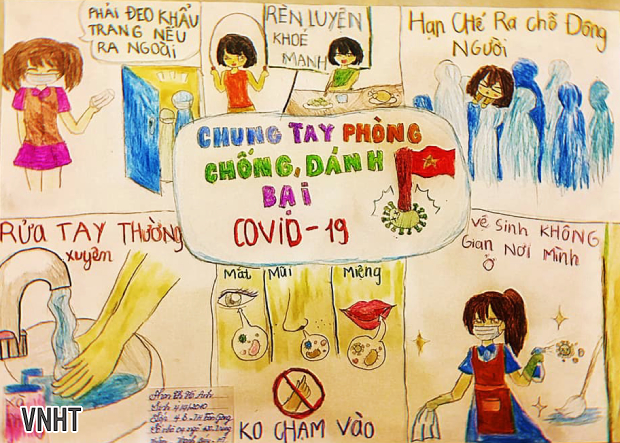 PHẢI ĐEO KHẨU
TRANG NẾU
RA NGOÀI
RÈN LUYỆN
KHOẺ
MẠNH
HẠN CHẾ RA CHỖ ĐÔNG
NGƯỜI
CHUNG TAY PHÒNG
CHỐNG, ĐÁNH
BẠI
COVID-19
RỬA TAY THƯỜNG
xuyên
Mắt Mũi Miệng
KO CHẠM VÀO
vệ sinh KHÔNG
Gian NƠI MÌNH
Ở
VNHT